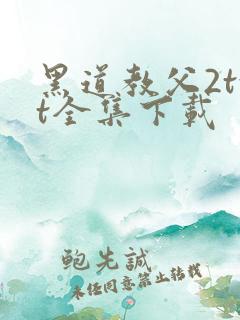 黑道教父2tx
t全集下载
鲍先誠
未经同意禁止转载